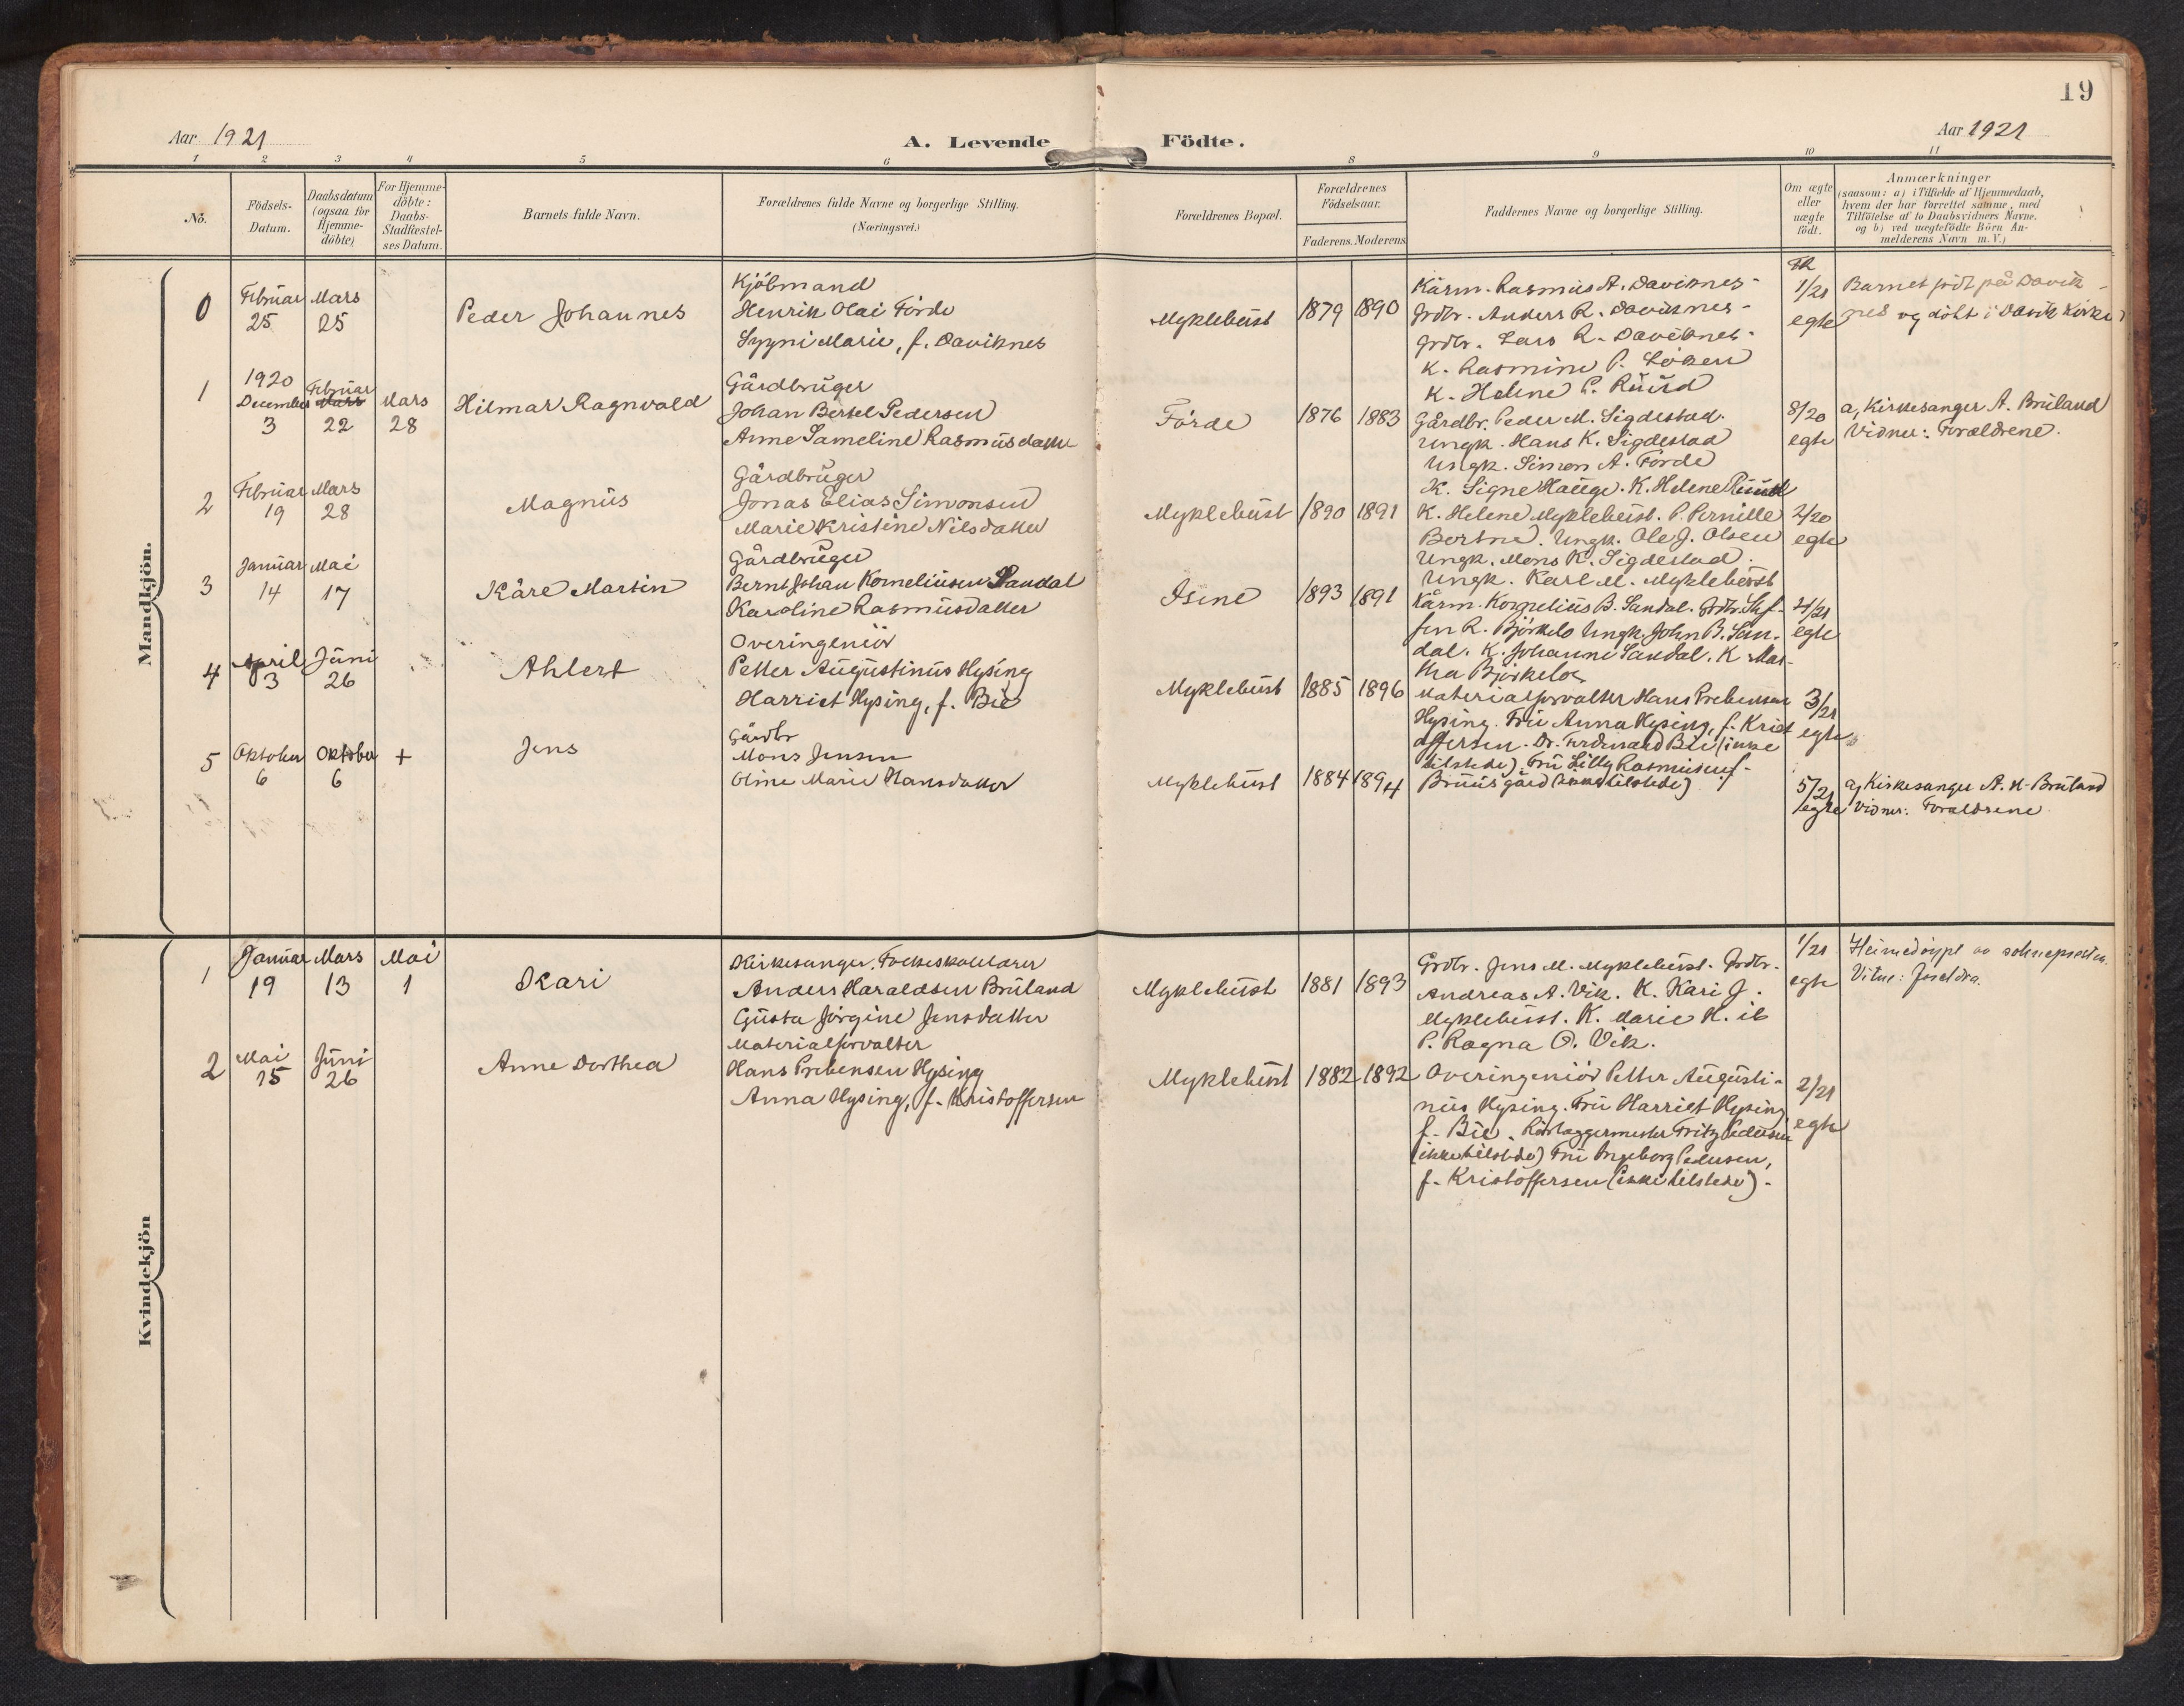 19
Aar 1921
A. Levende Födte.
Aar 1921
1 2 3 4 5 6 8 9 10 11
No.
Födsels-Datum.
Daabsdatum (ogsaa for Hjemme-döbte)
For Hjemme-döbte: Daabs-Stadfæstel-ses Datum.
Barnets fulde Navn.
Forældrenes fulde Navne og borgerlige Stilling.
(Næringsvei.)
Forældrenes Bopæl.
Forældrenes Födselsaar.
Faderens. Moderens.
Faddernes Navne og borgerlige Stilling.
Om ægte eller uægte födt.
Anmærkninger
(saasom: a) i Tilfælde af Hjemmedaab,
hvem der har forrettet samme, med
Tilföielse af to Daabsvidners Navne.
og b) ved uægtefödte Börn An-
melderens Navn m. V.)
Mandkjön.
0
Februar 25
Mars 25
Peder Johannes
Kjöbmand
Henrik Olai Förde
Sygni Marie, f. Daviknes
Myklebust
1879 1890
Kårm. Rasmus A. Daviknes-
Grdbr. Anders R. Daviknes-
Grdbr. Lars R. Daviknes-
K. Rasmine P. Löken
K. Helene P. Ruud
1/21
egte
Barnet födt på Davik-
nes og döbt i Davik Kirke
1
1920
December 3
Februar
Mars
22
Mars 28
Hilmar Ragnvald
Gårdbruger
Johan Bertel Pedersen
Anne Sameline Rasmusdatter
Förde
1876 1883
Gårdbr. Peder M. Sigdestad.
Ungk. Hans K. Sigdestad
Ungk. Simon A. Förde
K. Signe Hauge. K. Helene Ruud
8/20
egte
a, Kirkesanger A. Bruland
Vidner: Forældrene.
2
Februar 19
Mars 28
Magnus
Gårdbruger
Jonas Elias Simonsen
Marie Kristine Nilsdatter
Myklebust
1890 1891
K. Helene Myklebust. P. Pernille
Ungk. Ole J. Olsen
Ungk. Mons K. Sigdestad.
Ungk. Karl M. Myklebust
2/20
egte
3
Januar 14
Mai 17
Kåre Martin
Gårdbruger
Bernt Johan Korneliusen Sandal
Karoline Rasmusdatter
Isene
1893 1891
Kårm. Kornelius B. Sandal. Grdbr. Stef-
fen R. Björkelo Ungk. John B. San-
dal. K. Johanne Sandal. K Mar-
tha Björkelo
4/21
egte
4
April 3
Juni 26
Ahlert
Overingeniör
Petter Augustinus Hysing
Harriet Hysing, f. Bie
Myklebust
1885 1896
Materialforvalter Hans Prebensen
Hysing. Fru Anna Hysing, f. Krist
offersen. Dr. Ferdinand Bie (ikke
tilstede) Fru Lilly Rasmusen f.
Bruusgård (ikke tilstede)
3/21
egte
5
Oktober 6
Oktober 6
+
Jens
Gårdbr
Mons Jensen
Oline Marie Hansdatter
Myklebust
1884 1894
5/21
egte
a, Kirkesanger A. H. Bruland
Vidner: Forældrene
Kvindekjön
1
Januar 19
Mars 13
Mai 1
Kari
Kirkesanger. Folkeskolelærer
Anders Haraldsen Bruland
Gusta Jörgine Jensdatter
Myklebust
1881 1893
Grdbr. Jens M. Myklebust. Grdbr.
Andreas A. Vik. K. Kari J.
Myklebust. K. Marie H. ib
P. Ragna O. Vik.
1/21
egte
Heimedöypt av soknepresten.
Vitne: foreldra.
2
Mai 15
Juni 26
Anne Dorthea
Materialforvalter
Hans Prebensen Hysing
Anna Hysing, f. Kristoffersen
Myklebust
1882 1892
Overingeniör Petter Augusti-
nus Hysing. Fru Harriet Hysing
f. Bie. Rörlæggermester Fritz Pedersen
(ikke tilstede) Fru Ingeborg Pedersen,
f. Kristoffersen (ikke tilstede).
2/21
egte